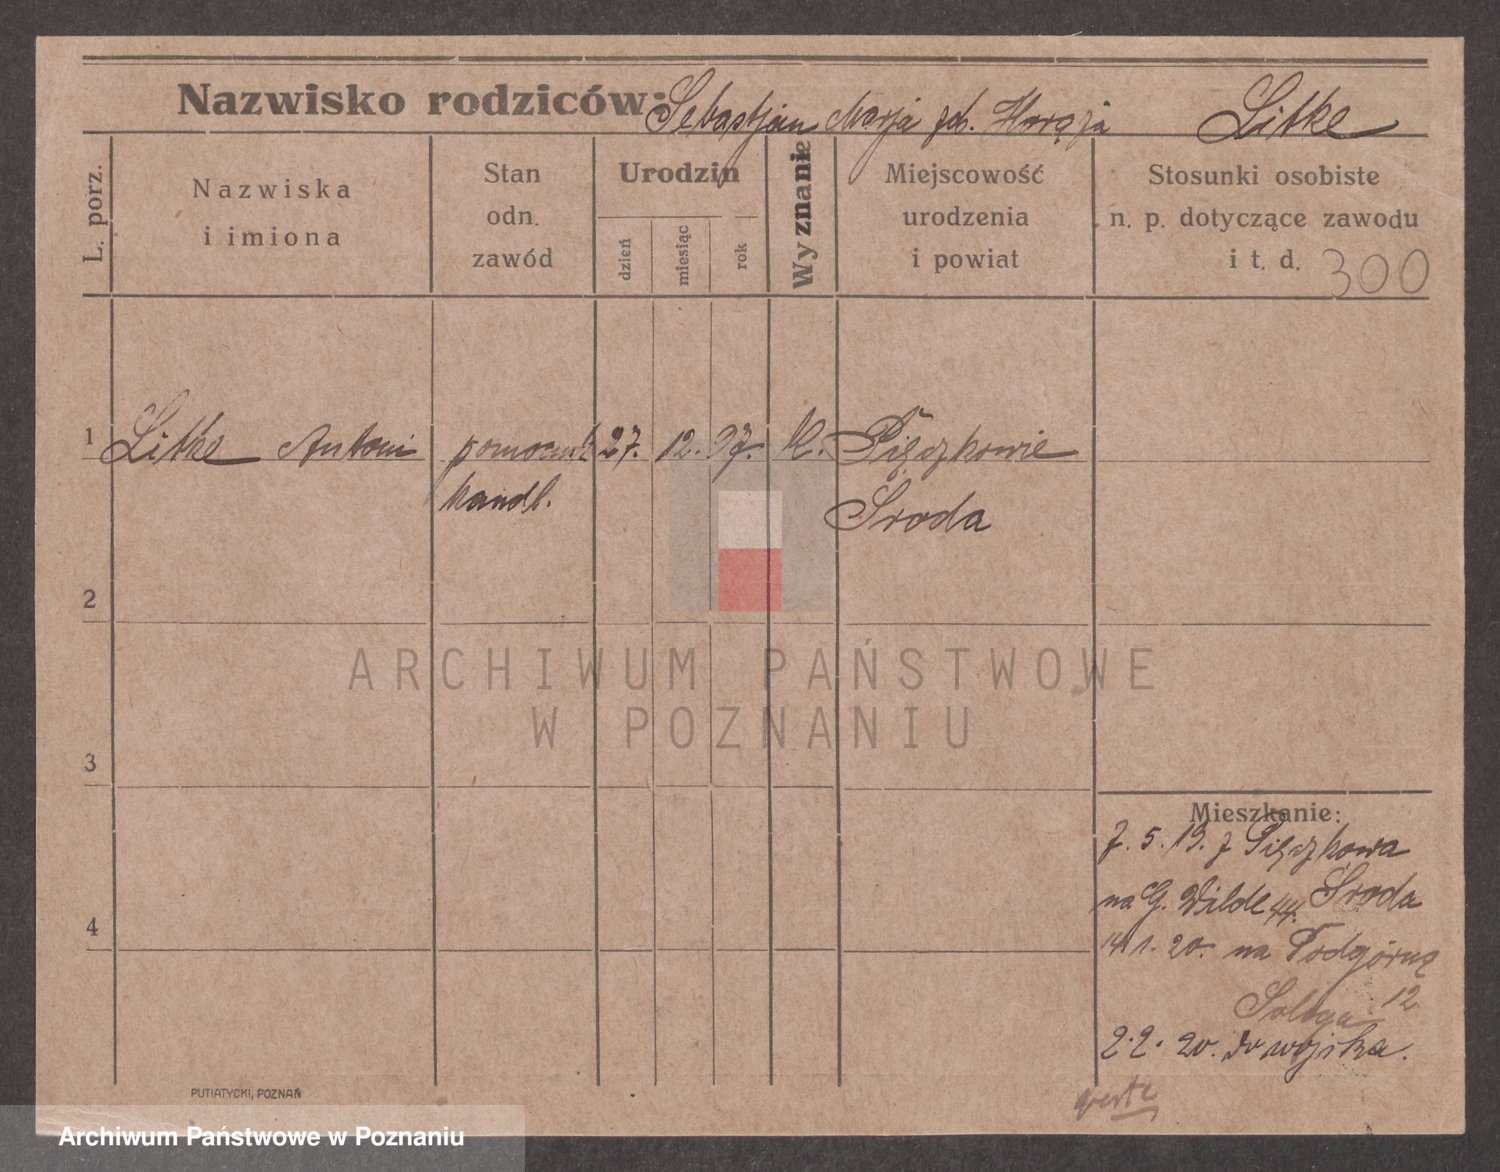 Nazwisko rodziców: Sebastjan Marja Litke
L. porz.
Nazwiska
i imiona
Stan
odn.
zawód
Urodzin
dzień
miesiąc
rok
Wyznanie
Miejscowość
urodzenia
i powiat
Stosunki osobiste
n. p. dotyczące zawodu
i t. d. 300
1 Litke Antoni pomocnik 27. 12. 97. K. Pięczkowie
handl. Środa
2
ARCHIWUM PAŃSTWOWE
W POZNANIU
3
Mieszkanie:
7. 5. 19. z Pięczkowa
na G. Wilde 44. Środa
4
14. 1. 20. na Podgórną
12
2. 2. 20. do wojska.
PUTIATYCKI, POZNAŃ
Archiwum Państwowe w Poznaniu